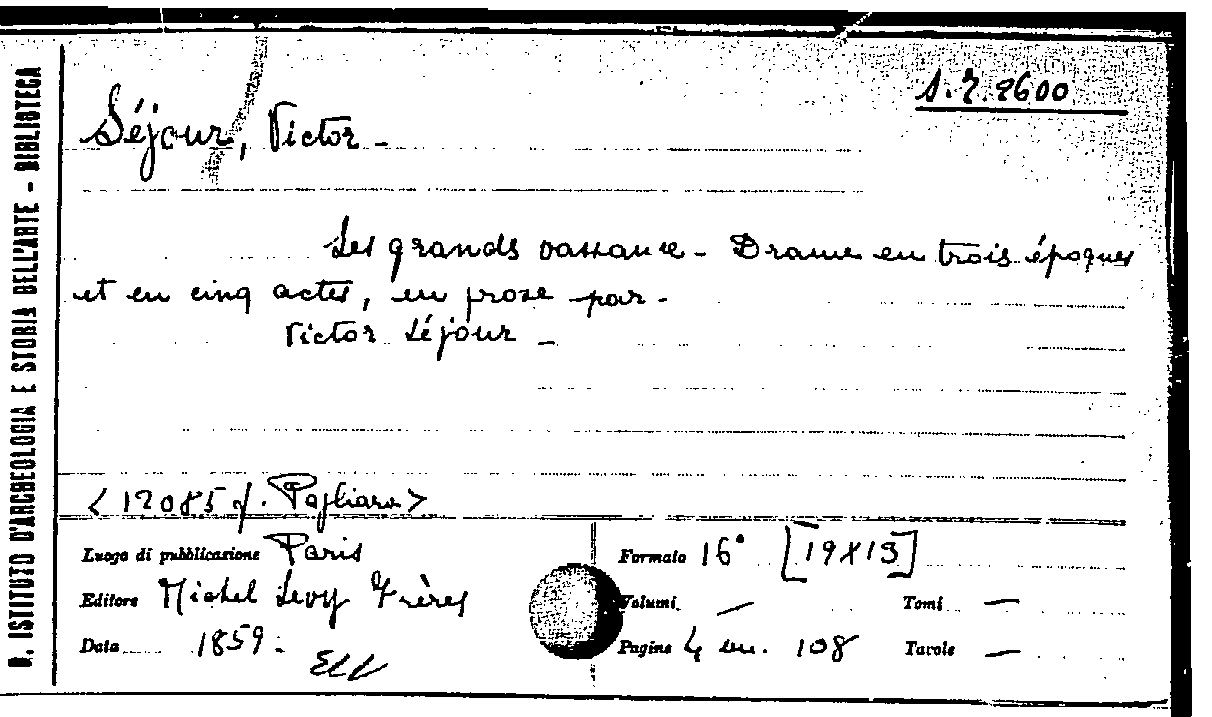 R. ISTITUTO D'ARCHEOLOGIA E STORIA DELL'ARTE - BIBLIOTECA
S.Z.2600
Séjour, Victor -
Les grands vassaux - Drame en trois époques
et en cinq actes, en prose par -
Victor Séjour -
<12085 f. Pagliara>
Luogo di pubblicazione Paris
Editore Michel Levy Frères
Data 1859.
Formato 16° [19X13]
Volumi — Tomi —
Pagine 4 nn. 108 Tavole —